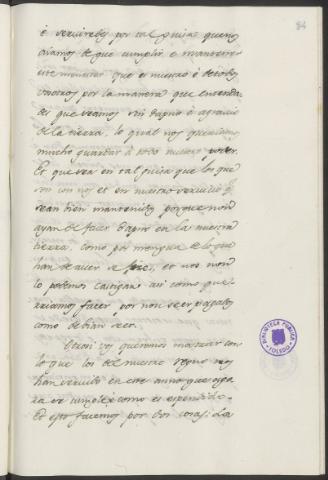 84
é servirebos por tal guisa querie
ayamos de que cumplir e mantener
este menester que es nuestro é de todos
vosotros por la manera que entenda
des que seamos sin dapno é agravio
de la tierra, lo qual nos queriamos
mucho guardar á todo nuestro poder.
Et que sea en tal guisa que los que
son con nos et en nuestro servicio
sean bien mantenidos porque non
ayan de facer dapno en la nuestra
tierra, como por mengua de lo que
han de aver se face, et nos non
lo podemos castigar asi como que
rriamos facer por non seer pagados
como debian seer.
Otrosi vos queremos mostrar con
lo que los del nuestro regno nos
han servido en este anno que agora
se cumple é como es espendido.
Et esto facemos por dos cosas: La
BIBLIOTECA PUBLICA
TOLEDO